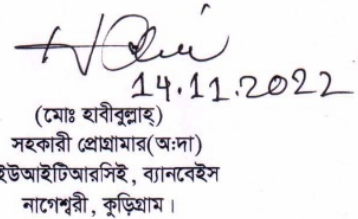 14.11.2022
(মোঃ হাবীবুল্লাহ্)
সহকারী প্রোগ্রামার(অ:দা)
ইউআইটিআরসিই, ব্যানবেইস
নাগেশ্বরী, কুড়িগ্রাম।